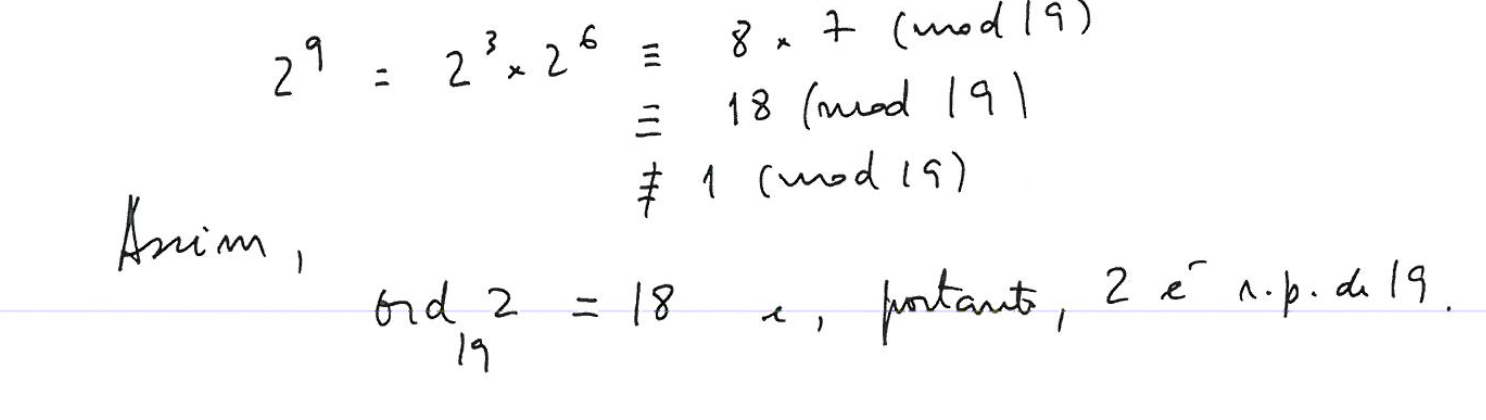 2⁹ = 2³ × 2⁶ ≡ 8 × 7 (mod 19)
≡ 18 (mod 19)
≢ 1 (mod 19)
Assim,
ord₁₉ 2 = 18 e, portanto, 2 é r.p. de 19.